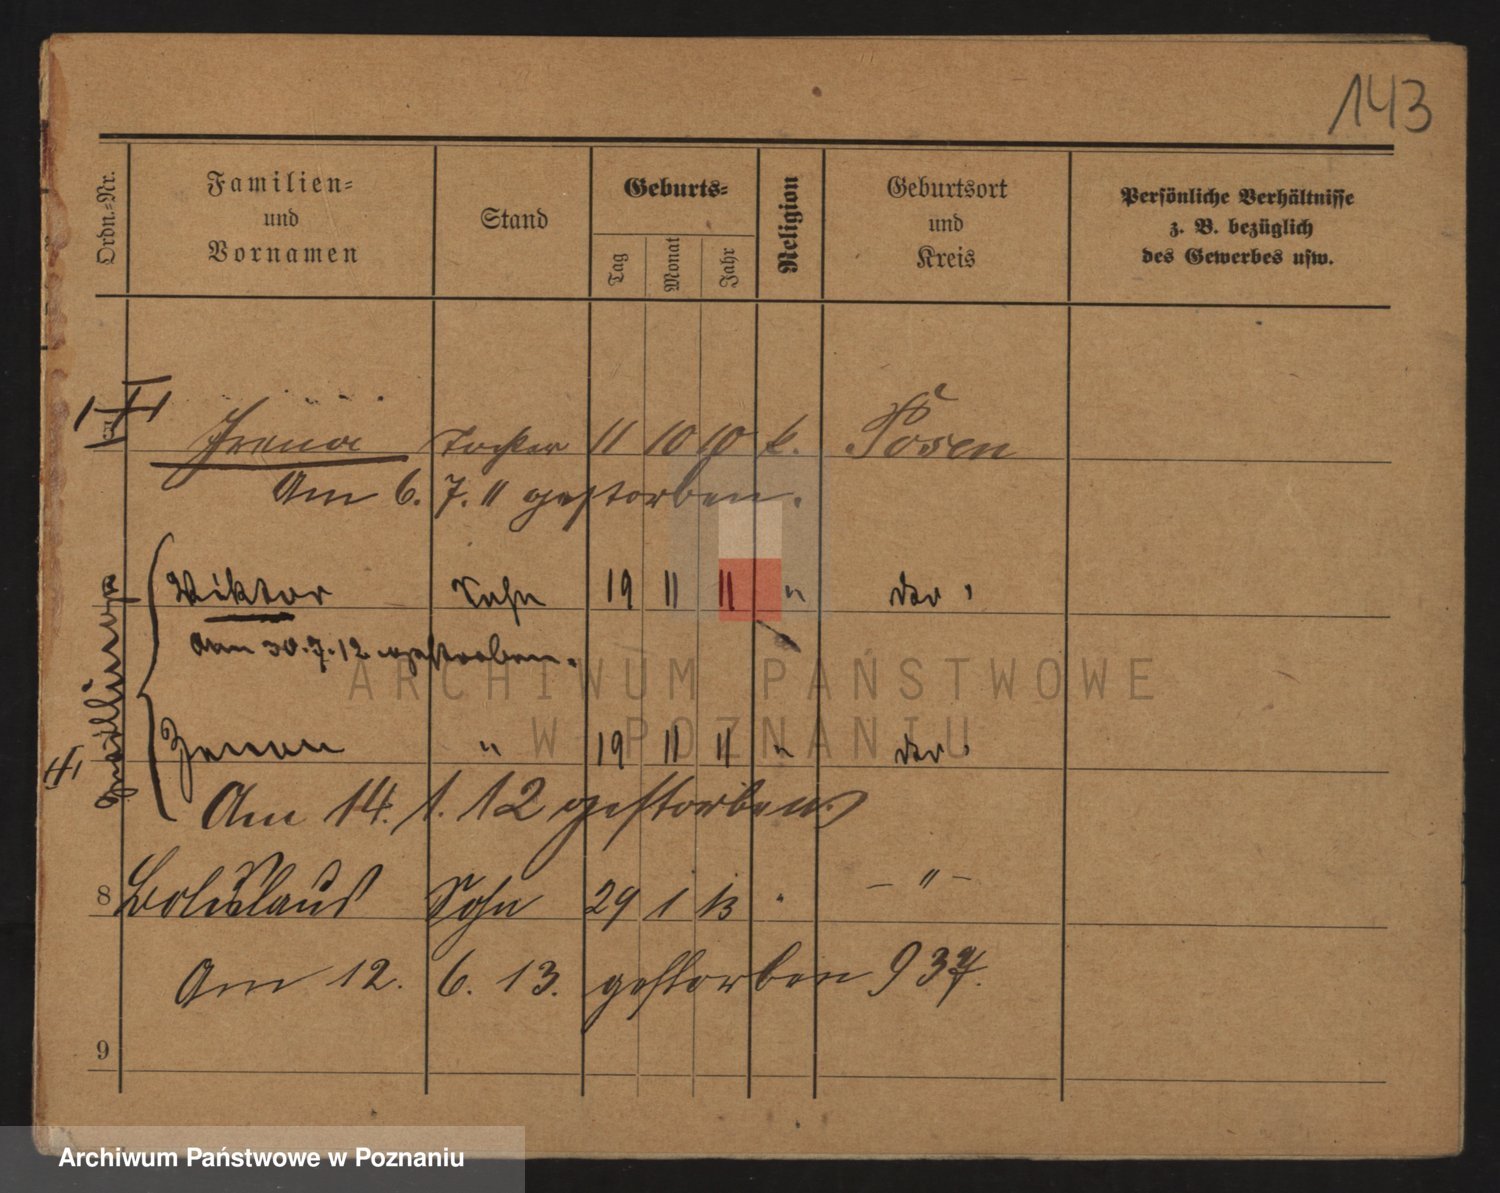 143
Ordn.-Nr.
Familien-
und
Vornamen
Stand
Geburts-
Tag
Monat
Jahr
Religion
Geburtsort
und
Kreis
Persönliche Verhältnisse
z. B. bezüglich
des Gewerbes usw.
Irena Tochter 11 10 10 k. Posen
Am 6. 7. 11 gestorben.
Viktor Sohn 19 11 11 "
am 30. 7. 12 gestorben.
Zwillinge
Zenon " 19 11 11 "
Am 14. 1. 12 gestorben
8 Boleslaus Sohn 29 1 13 " - " -
Am 12. 6. 13. gestorben
9
ARCHIWUM PAŃSTWOWE
W POZNANIU
Archiwum Państwowe w Poznaniu